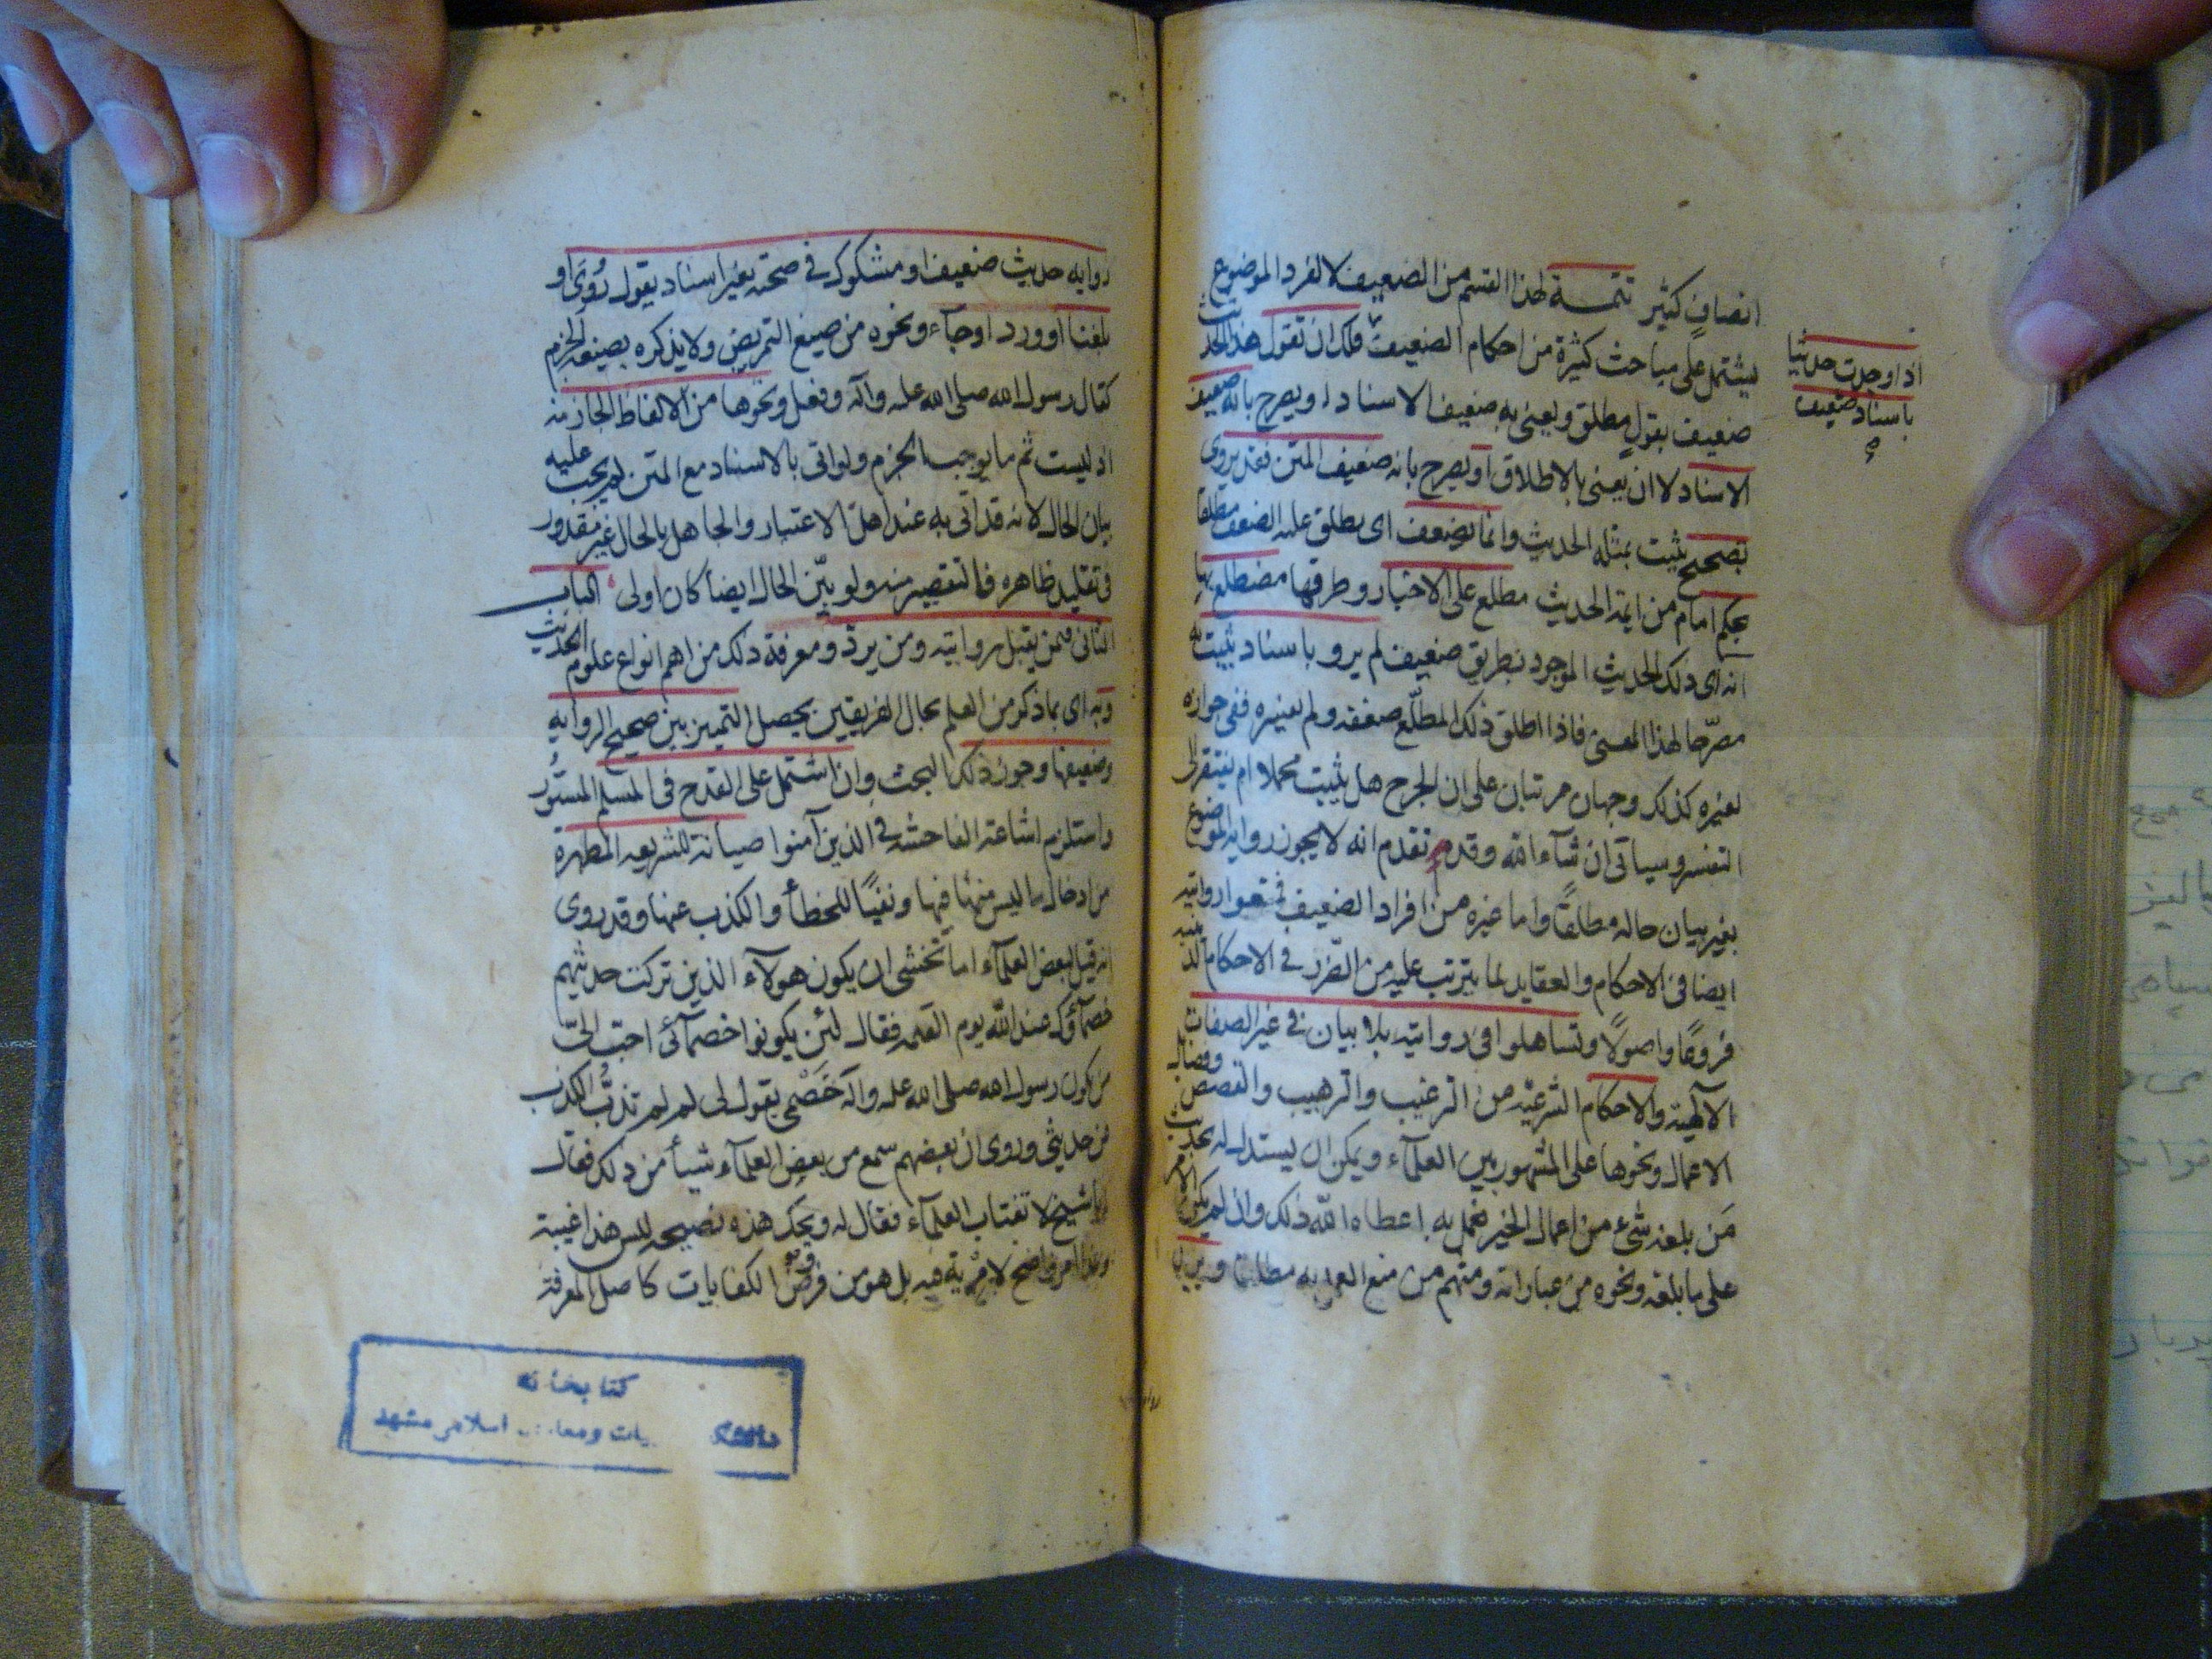 انصاف كثير تتمـــة لهذا القسم من الضعيف لا لفرد الموضوع
يشتمل على مباحث كثيرة من احكام الضعيف فلك ان تقول هذا الحديث
اذا وجدت حديثا
باسناد ضعيف
ضعيف بقول مطلق ويعنى به ضعيف الاسناد او يصرح بانه ضعيف
الاسناد لا ان يعنى بالاطلاق او يصرح بانه ضعيف المتن فقد يروى
بصحيح يثبت بمثله الحديث وانما يضعف اى يطلق عليه الضعف مطلقا
بحكم امام من ايمة الحديث مطلع على الاخبار وطرقها مضطلع بها
انه اى ذلك الحديث الموجود بطريق ضعيف لم يرو باسناد يثبت به
مصرّحا لهذا المعنى فاذا اطلق ذلك المطلّع ضعفه ولم يفسره ففى جوازه
لغيره كذلك وجهان مرتبان على ان الجرح هل يثبت مجملا ام يفتقر الى
التفسير وسياتى ان شاء الله وقد تقدم انه لا يجوز رواية الموضوع
بغير بيان حاله مطلقًا واما غيره من افراد الضعيف فمنعوا روايته
ايضا فى الاحكام والعقايد لما يترتب عليه من الضّرر فى الاحكام الدينيه
فروعًا واصولًا وتساهلوا فى روايته بلا بيان فى غير الصفات
الآلهية والاحكام الشرعيّة من الترغيب والترهيب والقصص وفضايل
الاعمال ونحوها على المشهور بين العلمآء ويمكن ان يستدل له بحديث
مَن بلغه شىء من اعمال الخير فعمل به اعطاه الله ذلك وان لم يكن الامر
على ما بلغه ونحوه من عباراته ومنهم من منع العمل به مطلقا
رواية حديث ضعيف او مشكوك فى صحته بغير اسناد يقول رُوِىَ او
بلغنا او ورد او جآء ونحوه من صيغ التمريض ولا يذكره بصيغة الجزم
كقال رسول الله صلى الله عليه وآله وفعل ونحوها من الالفاظ الجازمة
اذ ليست ثم ما يوجب الجزم ولو اتى بالاسناد مع المتن لم يجب عليه
بيان الحال لانه قد اتى به عند اهل الاعتبار والجاهل بالحال غير مقدور
فى تقليد ظاهره فالتقصير منه ولو بيّن الحال ايضا كان اولى الباب
الثانى فمن يقبل روايته ومن يردّ ومعرفة ذلك من اهم انواع علوم الحديث
وبه اى بما ذكر من العلم بحال الفريقين يحصل التمييز بين صحيح الرواية
وضعيفها وجوز ذلك البحث وان اشتمل على القدح فى المسلم المستور
واستلزم اشاعة الفاحشة فى الذين آمنوا صيانة للشريعة المطهرة
من ادخال ما ليس منها فيها ونفيًا للخطأ والكذب عنها وقد روى
انه قيل لبعض العلمآء اما تخشى ان يكون هولآء الذين تركت حديثهم
خصمآؤك عند الله يوم القيمة فقال لئن يكونوا خصمآئى احبّ الىّ
من ان يكون رسول الله صلى الله عليه وآله خَصْمى يقول لى لم لم تذبّ الكذب
عن حديثى وروى ان بعضهم سمع من بعض العلمآء شيأ من ذلك فقال
يا شيخ لا تغتاب العلمآء فقال له ويحك هذه نصيحة ليس هذا غيبة
وهذا امر واضح لا مِرْية فيه بل هو من فروض الكفايات كاصل المعرفة
كتابخانه
دانشكده ومعارف اسلامى مشهد